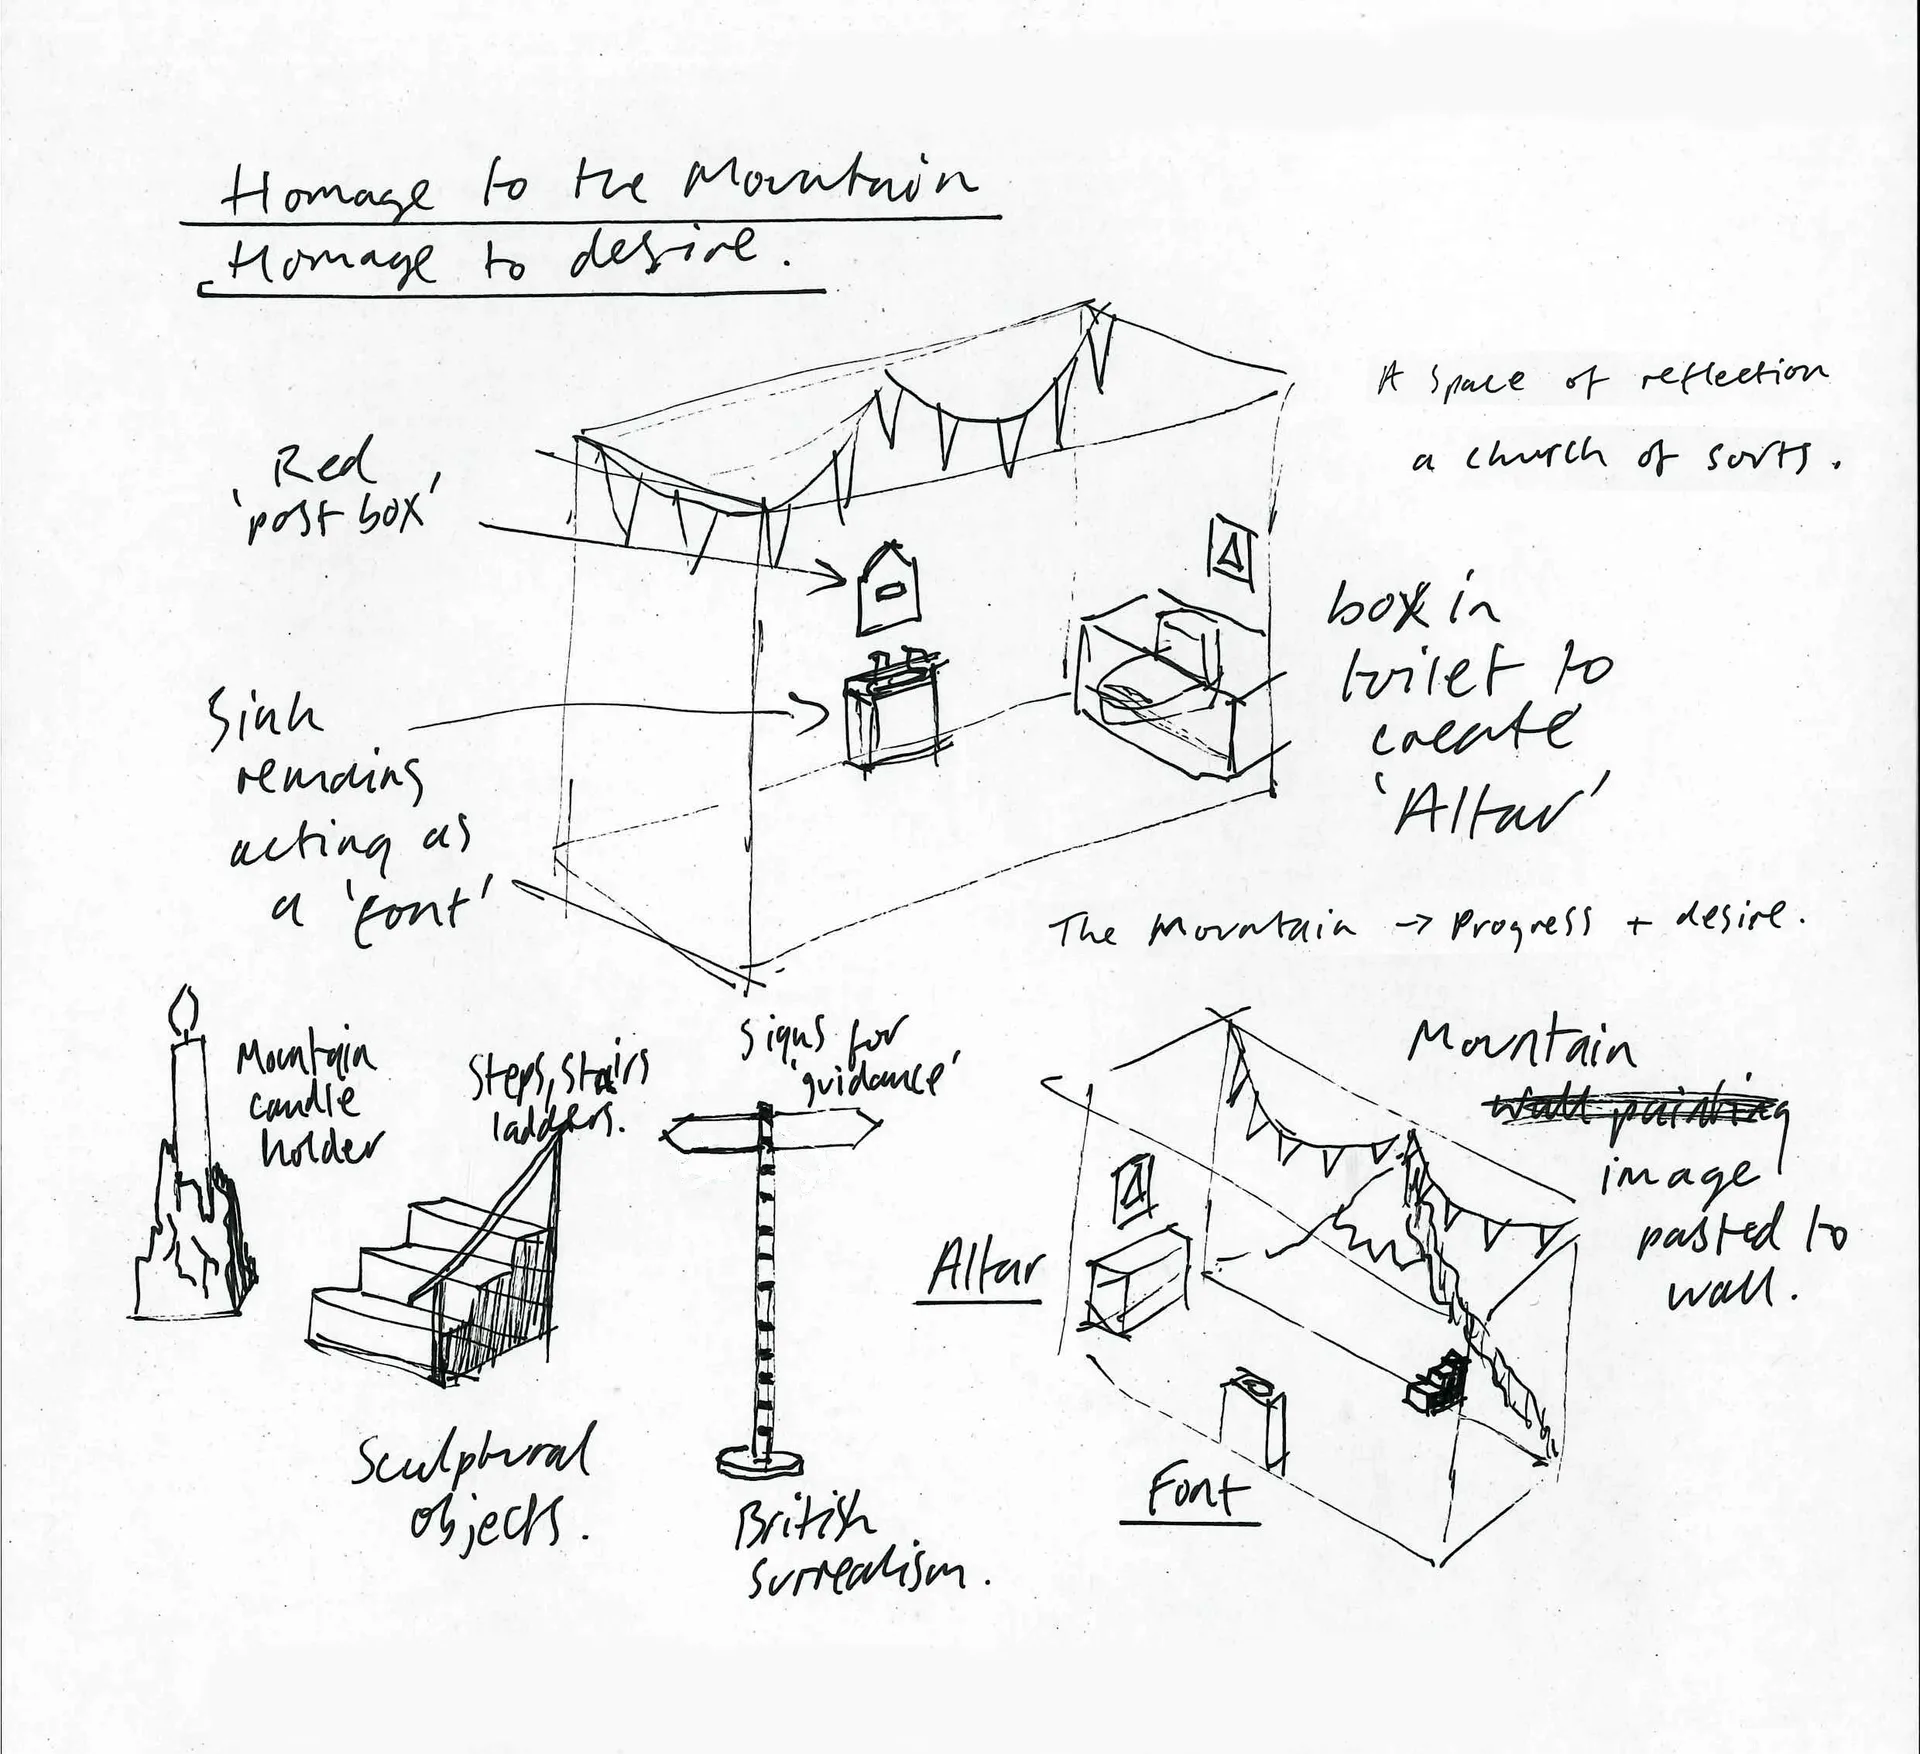 Homage to the Mountain
Homage to desire.
A space of reflection
a church of sorts.
Red
'post box'
box in
toilet to
create
'Altar'
Sink
remains
acting as
a 'font'
The Mountain → Progress + desire.
Mountain
candle
holder
Steps, stairs
ladders.
Signs for
'guidance'
Mountain
wall painting
image
pasted to
wall.
Altar
Sculptural
objects.
Font
British
surrealism.